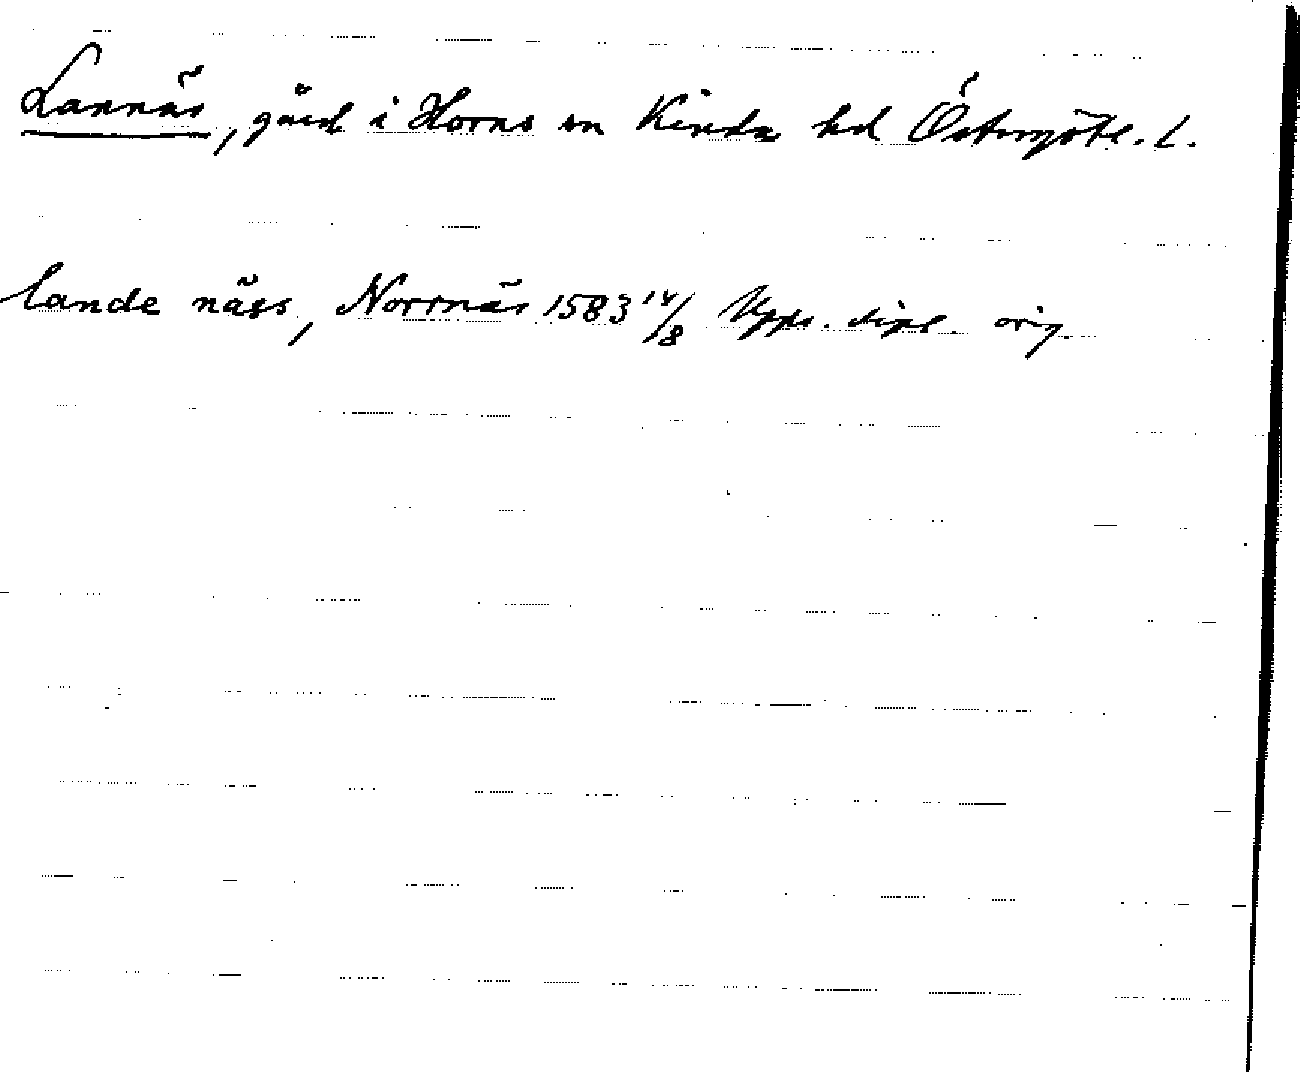 Lannäs, gård i Horns sn Kinda hd Östergötl. L.
lande näss, Norrnäs 1583 14/8 Upps. dipl. orig